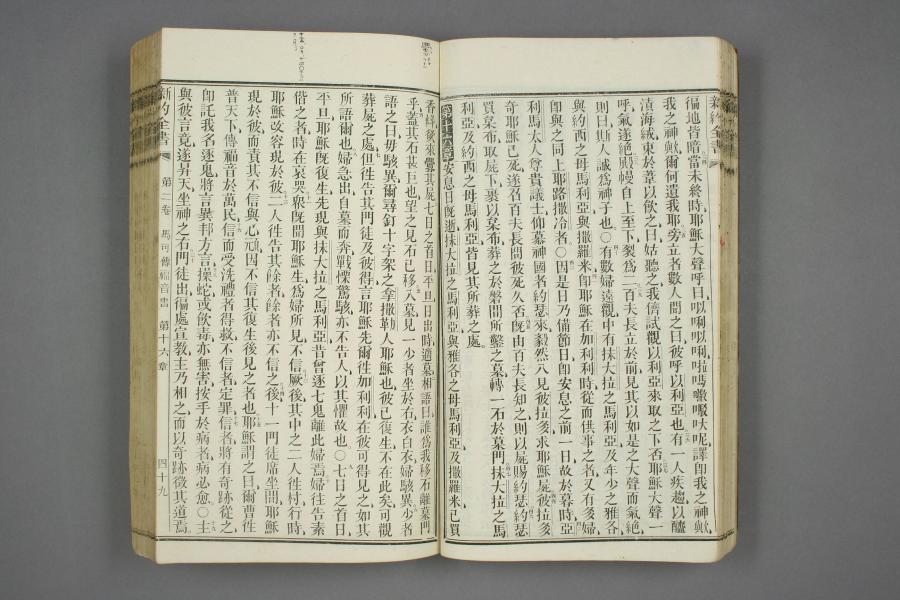 新約全書
徧地皆暗當未終時耶穌大聲呼曰以唎以唎啦嗎嚫啜大呢譯卽我之神歟
我之神歟爾何遺我耶旁立者數人聞之曰彼呼以利亞也有一人疾趨以醯
漬海絨束於葦以飲之曰姑聽之我儕試觀以利亞來取之下否耶穌大聲一
呼氣遂絕殿幔自上至下裂爲二百夫長立於前見其以如是之大聲而氣絕
則曰斯人誠爲神子也○有數婦遠觀中有抹大拉之馬利亞及年少之雅各
與約西之母馬利亞與撒羅米卽耶穌在加利利時從而供事之者又有多婦
卽與之同上耶路撒冷者○因是日乃備節日卽安息之前一日故於暮時亞
利馬太人尊貴議士仰慕神國者約瑟來毅然入見彼拉多求耶穌屍彼拉多
奇耶穌已死遂召百夫長問彼死久否旣由百夫長知之則以屍賜約瑟約瑟
買枲布取屍下裹以枲布葬之於磐間所鑿之墓轉一石於墓門抹大拉之馬
利亞及約西之母馬利亞皆見其所葬之處
第十六章安息日旣逝抹大拉之馬利亞與雅各之母馬利亞及撒羅米已買
香料欲來釁其屍七日之首日平旦日出時適墓相語曰誰爲我移石離墓門
乎蓋其石甚巨也望之見石已移入墓見一少者坐於右衣白衣婦駭異少者
語之曰毋駭異爾尋釘十字架之拿撒勒人耶穌也彼已復生不在此矣可觀
葬屍之處但往告其門徒及彼得言耶穌先爾往加利利在彼可得見之如其
所語爾也婦急出自墓而奔戰慄驚駭亦不告人以其懼故也○七日之首日
平旦耶穌旣復生先現與抹大拉之馬利亞昔曾逐七鬼離此婦焉婦往告素
偕之者時在哀哭衆旣聞耶穌生爲婦所見不信厥後其中之二人往村行時
耶穌改容現於彼二人往告其餘者餘者亦不信之後十一門徒席坐間耶穌
現於彼而責其不信與心頑因不信其復生後見之者也耶穌謂之曰爾曹往
普天下傳福音於萬民信而受洗禮者得救不信者定罪信者將有奇跡從之
卽託我名逐鬼將言異邦方言操蛇或飮毒亦無害按手於病者病必愈○主
與彼言竟遂昇天坐神之右門徒出徧處宣教主乃相之而以奇跡徵其道焉
新約全書 第二卷 馬可傳福音書 第十六章 四十九